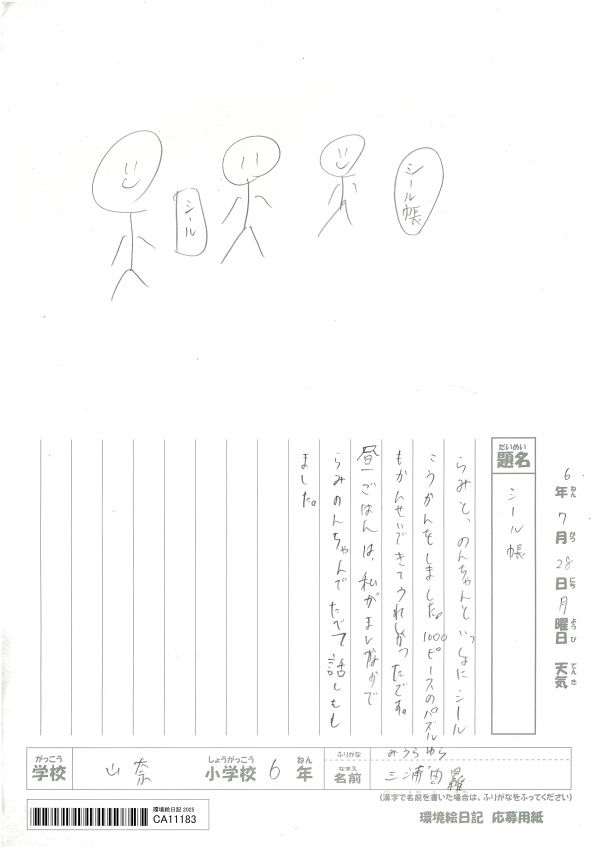 シール
シール帳
6年ねん7月がつ28日にち月曜日ようび 天気てんき
題名だいめい
シール帳
らみと、のんちゃんといっしょにシール
こうかんをしました。1000ピースのパズル
もかんせいできてうれしかったです。
昼ごはんは、私がまんなかで
らみのんちゃんでたべて話しもし
ました。
がっこう
学校 山奈 小学校 6年
しょうがっこう ねん
ふりがな みうら ゆら
なまえ
名前 三浦 由羅
(漢字で名前を書いた場合は、ふりがなをふってください)
環境絵日記 2025
CA11183
環境絵日記 応募用紙